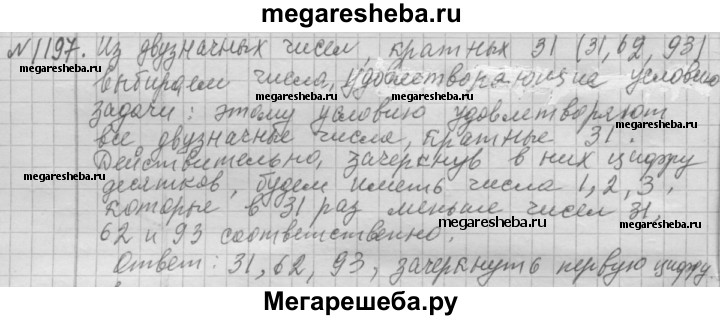 megaresheba.ru
№1197. Из двузначных чисел, кратных 31 (31, 62, 93)
megaresheba.ru megaresheba.ru megaresheba.ru
выбираем числа, удовлетворяющие условию
задачи: этому условию удовлетворяют
megaresheba.ru
все двузначные числа, кратные 31.
megaresheba.ru megaresheba.ru
Действительно, зачеркнув в них цифру
megaresheba.ru
десятков, будем иметь числа 1, 2, 3,
которые в 31 раз меньше чисел 31,
megaresheba.ru megaresheba.ru
62 и 93 соответственно.
Ответ: 31, 62, 93, зачеркнуть первую цифру.
Мегарешеба.ру